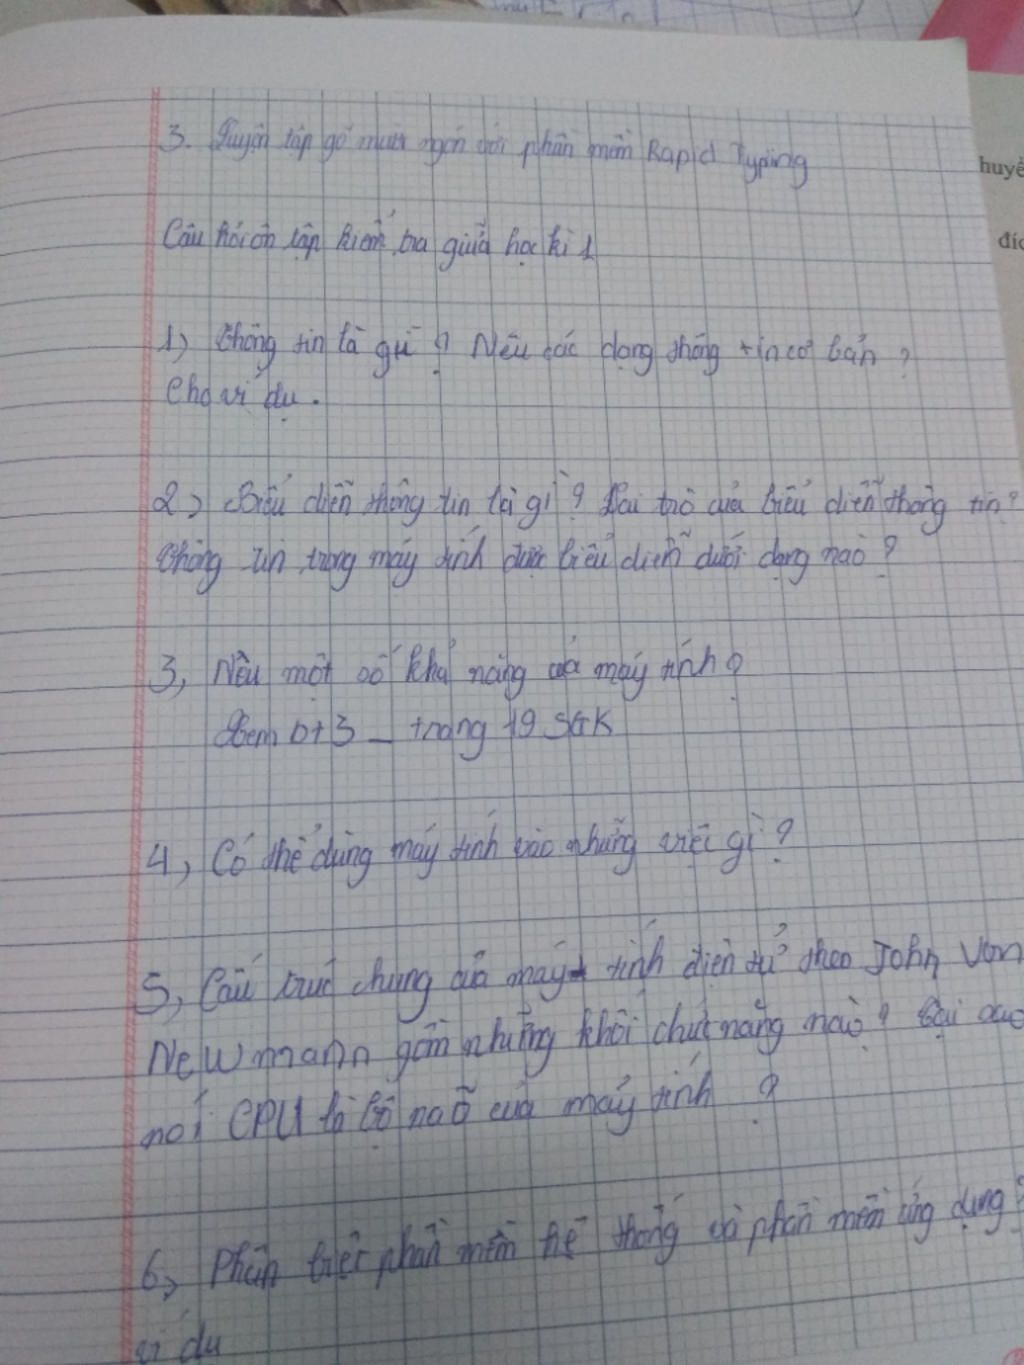 3. Luyện tập gõ mười ngón với phần mềm Rapid Typing
Câu hỏi ôn tập kiểm tra giữa học kì 1
1) Thông tin là gì ? Nêu các dạng thông tin cơ bản ?
Cho ví dụ .
2) Biểu diễn thông tin là gì ? Vai trò của biểu diễn thông tin ?
Thông tin trong máy tính được biểu diễn dưới dạng nào ?
3, Nêu một số khả năng của máy tính ?
Xem bt3 _ trang 19 SGK
4, Có thể dùng máy tính vào những việc gì ?
5, Cấu trúc chung của máy tính điện tử theo John Von
Newmann gồm những khối chức năng nào ? Tại sao
nói CPU là bộ não của máy tính ?
6, Phân biệt phần mềm hệ thống và phần mềm ứng dụng ?
ví dụ
huyể
đíc